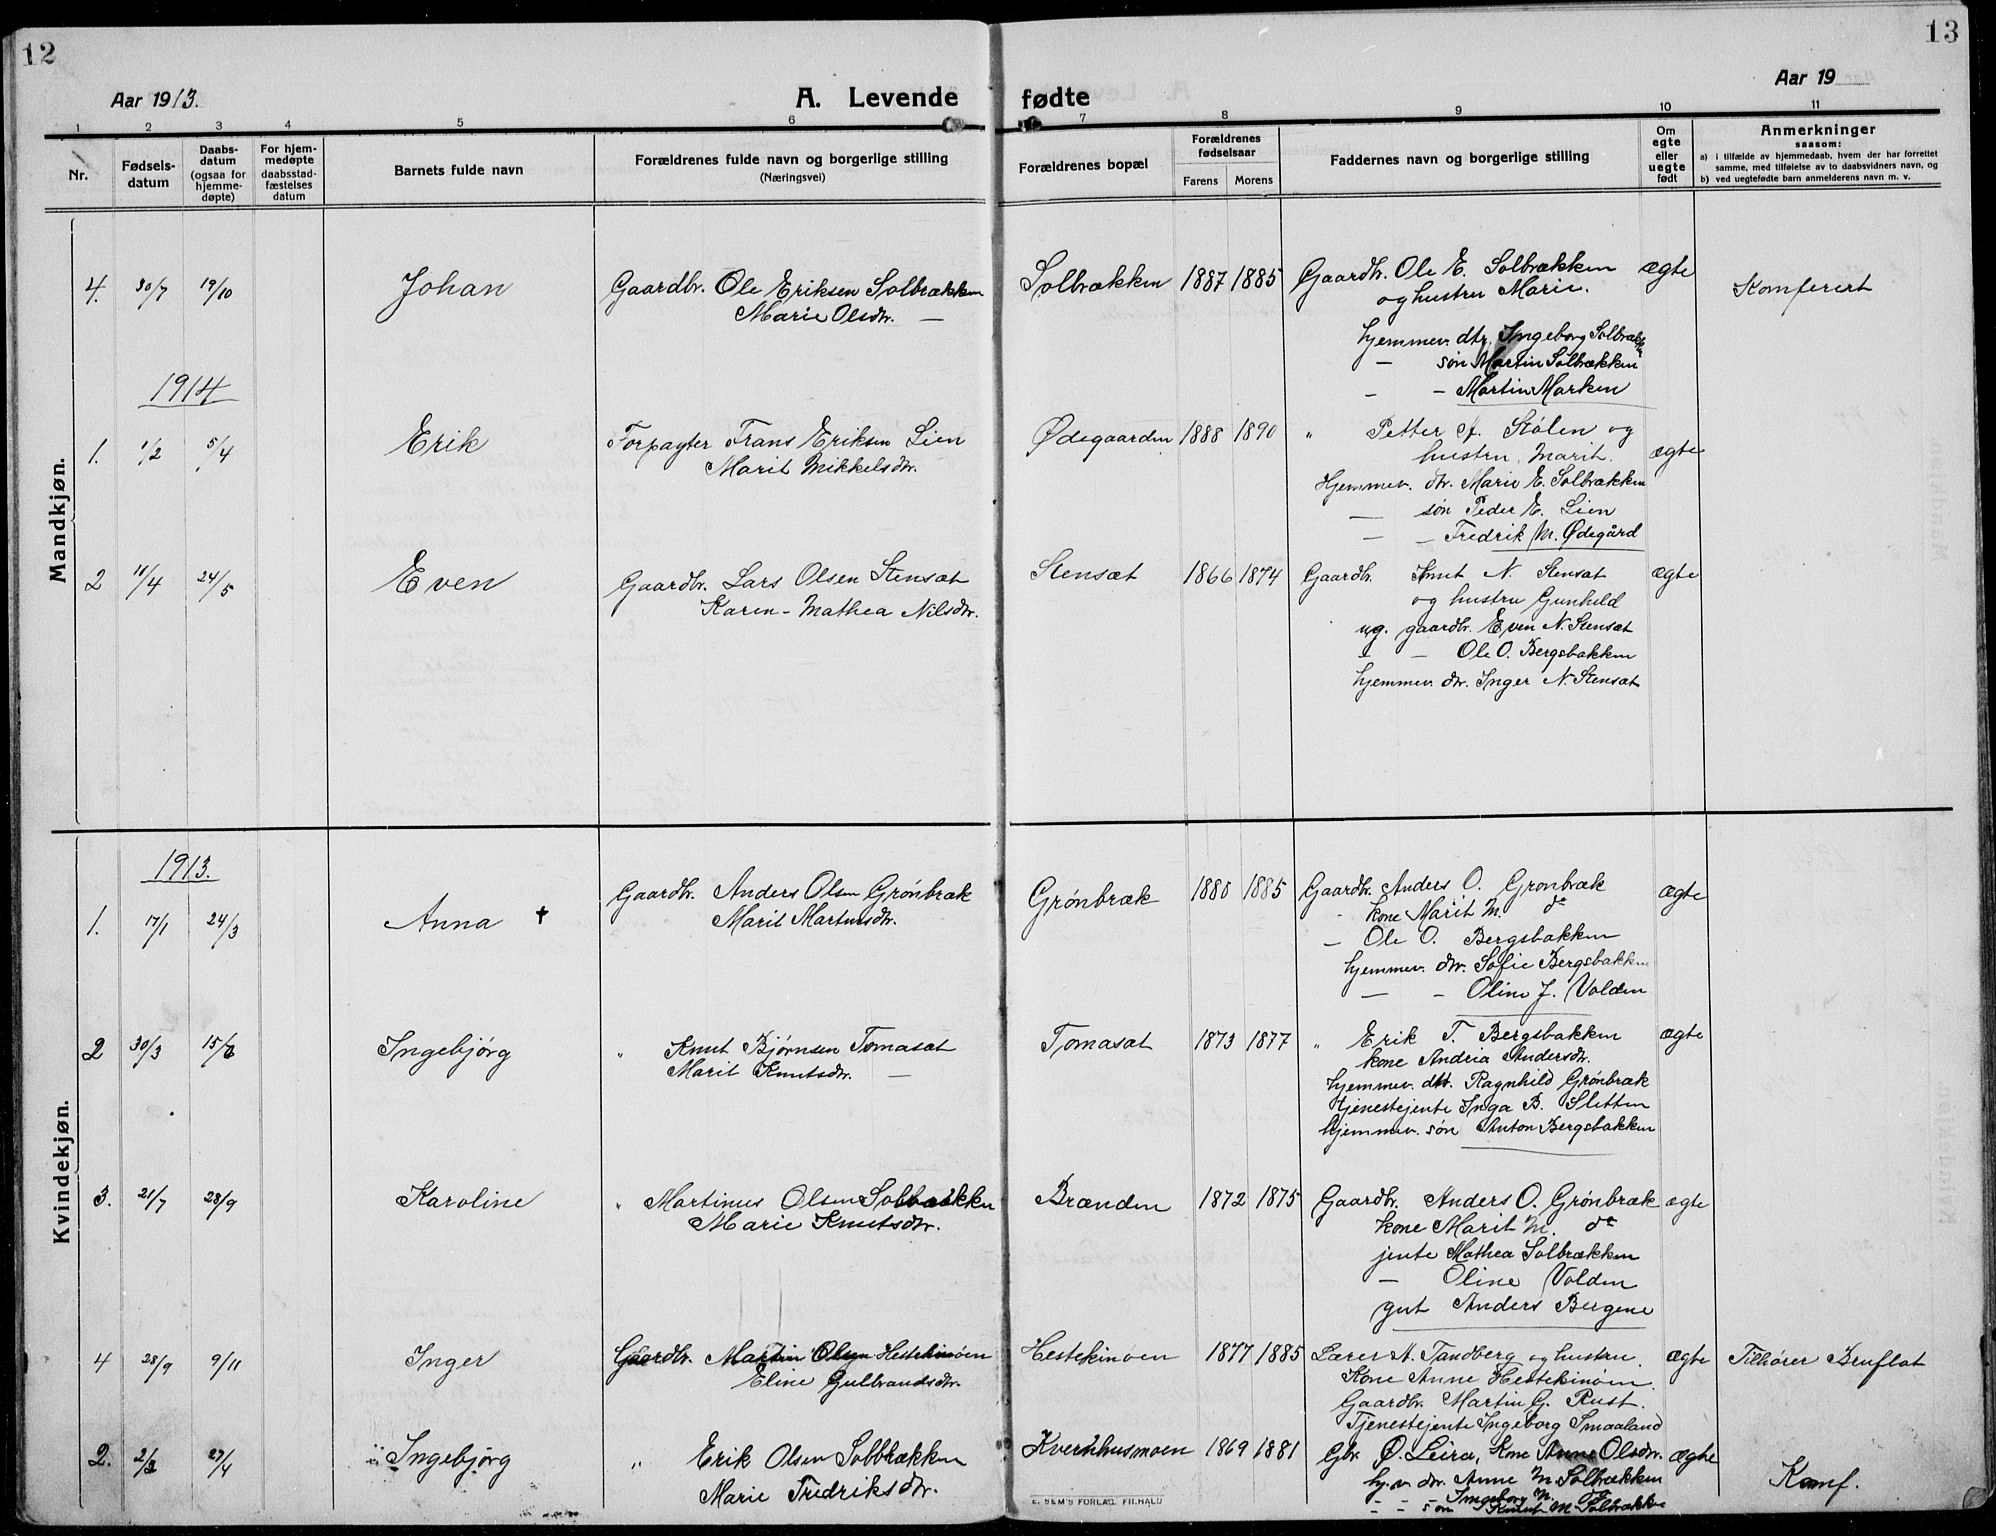 12
13
Aar 1913.
A. Levende fødte
Aar 19
1 2 3 4 5 6 7 8 9 10 11
Nr.
Fødsels-
datum
Daabs-
datum
(ogsaa for
hjemme-
døpte)
For hjem-
medøpte
daabsstad-
fæstelses
datum
Barnets fulde navn
Forældrenes fulde navn og borgerlige stilling
(Næringsvei)
Forældrenes bopæl
Forældrenes
fødselsaar
Farens Morens
Faddernes navn og borgerlige stilling
Om
egte
eller
uegte
født
Anmerkninger
saasom:
a) i tilfælde av hjemmedaab, hvem der har forrettet
samme, med tilføielse av to daabsvidners navn, og
b) ved uegtefødte barn anmelderens navn m. v.
Mandkjøn.
4. 30/7 19/10 Johan Gaardbr. Ole Eriksen Solbrækken
Marie Olsdtr. —
Solbrækken 1887 1885
Gaardbr. Ole E. Solbrækken
og hustru Marie.
hjemmev. dtr. Ingeborg Solbrækken
— søn Martin Solbrækken
- - Martin Marken
ægte
Komferert
1914
1. 1/2 5/4 Erik Forpagter Frans Eriksen Lien
Marit Mikkelsdtr.
Ødegaarden 1888 1890
" Petter A. Stölen og
hustru, Marit.
Hjemmev. dtr. Marie E. Solbrækken
— søn Peder E. Lien
- - Fredrik M. Ødegård
ægte
2 11/4 24/5 Even Gaardbr. Lars Olsen Stensæt
Karen-Mathea Nilsdtr.
Stensæt 1866 1874
Gaardbr. Knut N. Stensæt
og hustru Gunhild
ug. gaardbr. Even N. Stensæt
- - Ole O. Bergsbakken
hjemmev. dtr. Inger N. Stensæt
ægte
Kvindekjøn.
1913.
1. 17/1 24/3 Anna † Gaardbr. Anders Olsen Grönbræk
Marit Martinsdtr.
Grönbræk 1880 1885
Gaardbr. Anders O. Grönbræk
kone Marit M. do
- Ole O. Bergsbakken
hjemmev. dtr. Sofie Bergsbakken
— - Oline J. Volden
ægte
2 30/3 15/6 Ingebjörg " Knut Bjørnsen Tomasæt
Marit Knutsdtr. —
Tomasæt 1873 1877
" Erik T. Bergsbakken
kone Andria Andersdtr.
hjemmev. dtr. Ragnhild Grönbræk
tjenestejente Inga B. Sletten
hjemmev. søn Anton Bergsbakken
ægte
3. 21/7 28/9 Karoline " Martinus Olsen Solbrækken
Marie Knutsdtr.
Brænden 1872 1875
Gaardbr. Anders O. Grönbræk
kone Marit M. do
jente Mathea Solbrækken
— Oline Volden
gut Anders Bergene
ægte
4 28/9 9/11 Inger Gaardbr. Martin Olsen Hestekinöen
Eline Gulbrandsdtr.
Hestekinöen 1877 1885
Lærer A. Tandberg og hustru.
Kone Anne Hestekinöen.
Gaardbr. Martin G. Rust.
Tjenestejente Ingeborg Smaaland
ægte
Tilhører Bruflat
2. 27/4 Ingebjörg " Erik Olsen Solbrækken
Marie Fredriksdtr.
Kvernhusmoen 1869 1881
Gbr. Ø. Leira, Kone Anne Olsdtr.
hj.v. dtr. Anne M. Solbrækken
- - Ingeborg M. do
- - søn Knut M. Solbrækken
ægte
Komf.
E. SEM'S FORLAG, FR.HALD